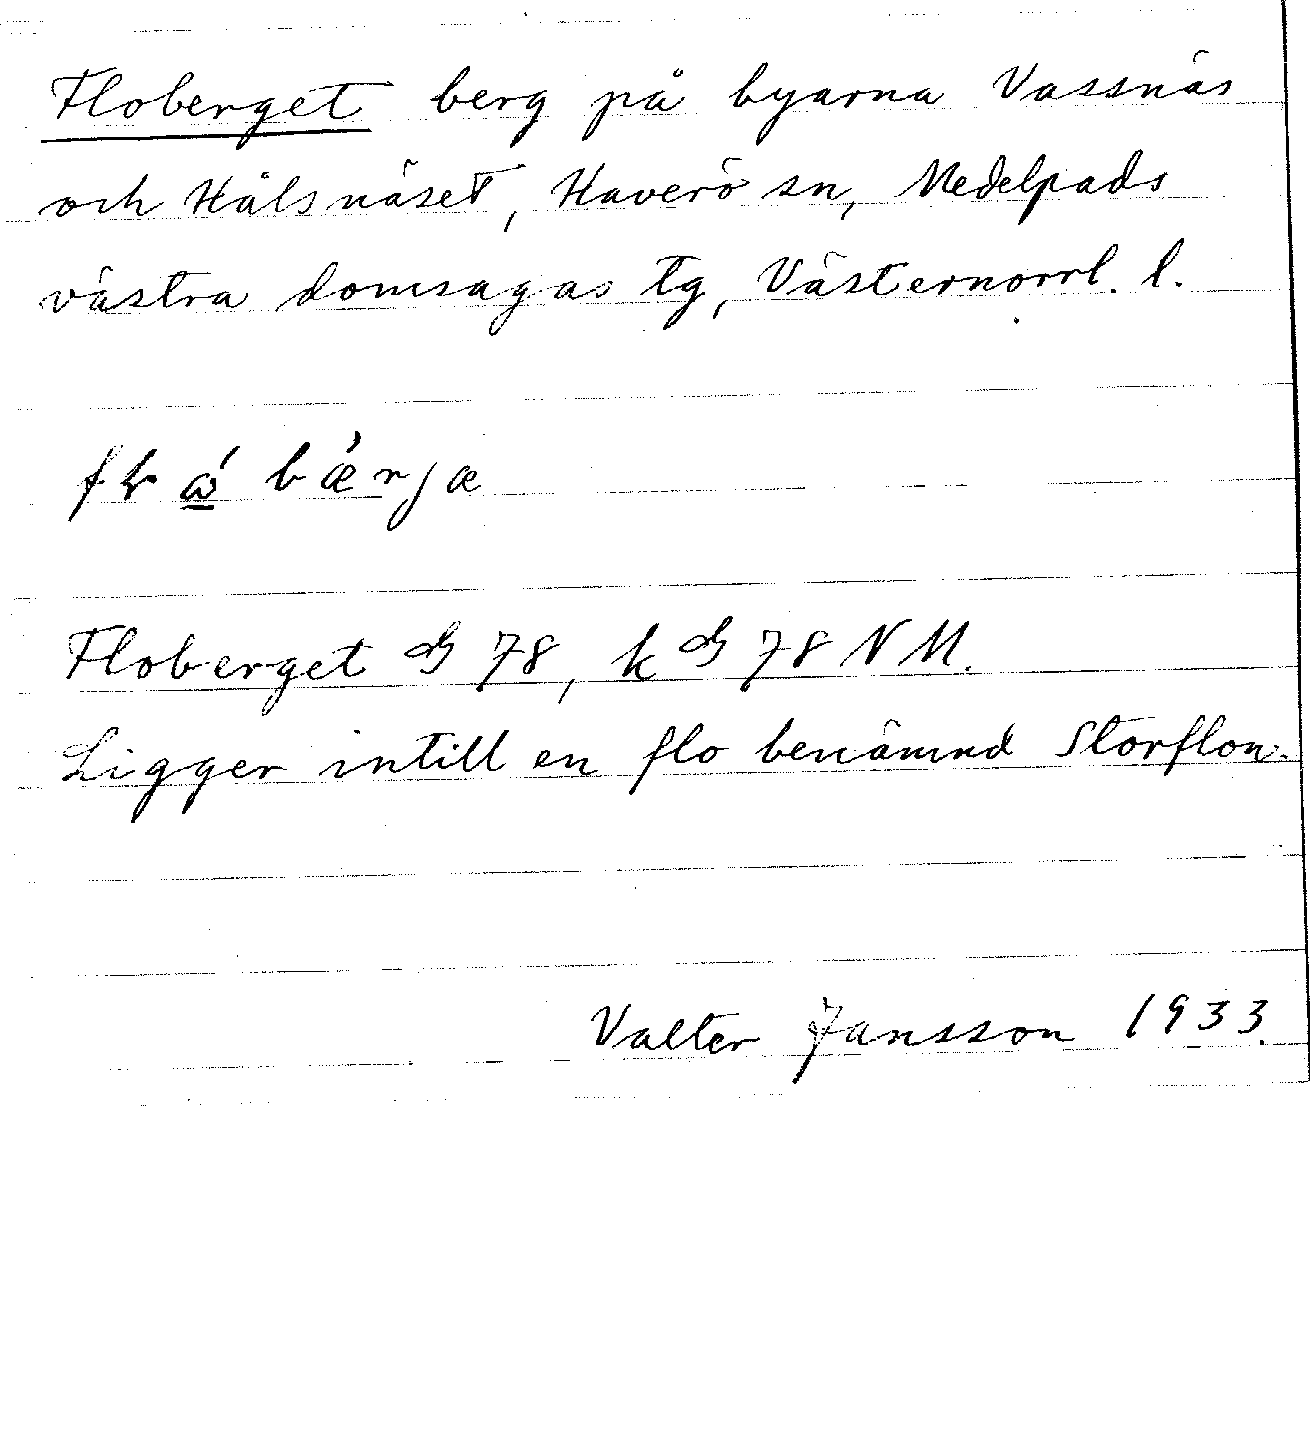 Floberget berg på byarna Vassnäs
och Hålsnäset, Haverö sn, Medelpads
västra domsagas tg, Västernorrl. l.
bæ̀rjæ
Floberget G 78, k G 78 NM.
Ligger intill en flo benämnd Storflon.
Valter Jansson 1933.